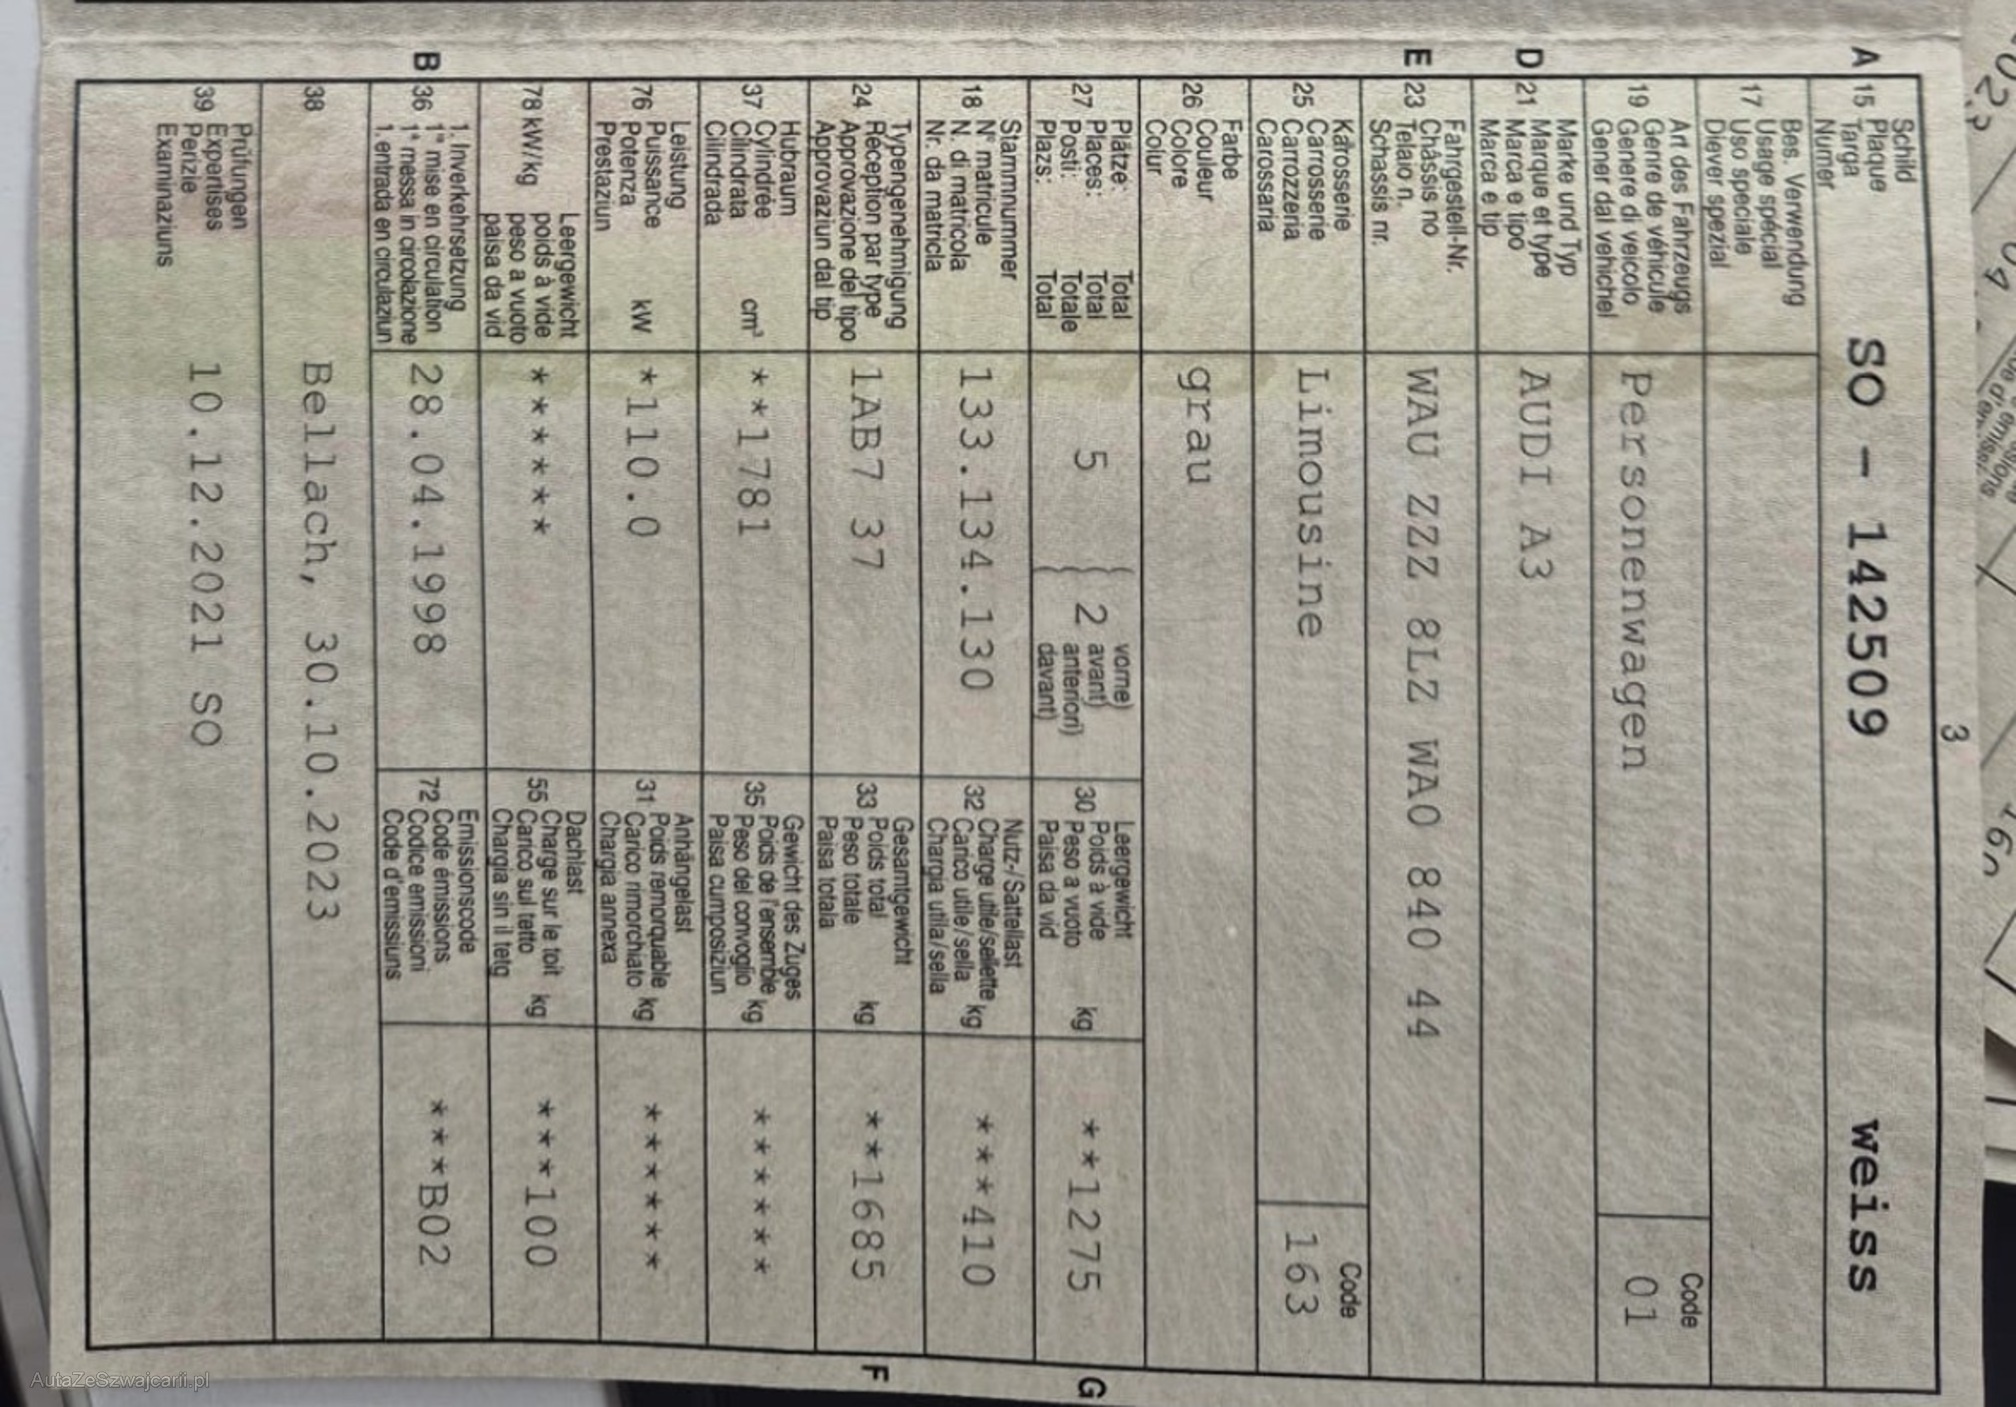 3
A 15 Schild
Plaque
Targa
Numer
SO - 142509 weiss
17 Bes. Verwendung
Usage spécial
Uso speciale
Diever spezial
19 Art des Fahrzeugs
Genre de véhicule
Genere di veicolo
Gener dal vehichel
Personenwagen
Code
01
D 21 Marke und Typ
Marque et type
Marca e tipo
Marca e tip
AUDI A3
E 23 Fahrgestell-Nr.
Châssis no
Telaio n.
Schassis nr.
WAU ZZZ 8LZ WA0 840 44
25 Karosserie
Carrosserie
Carrozzeria
Carossaria
Limousine
Code
163
26 Farbe
Couleur
Colore
Colur
grau
27 Plätze: Total
Places: Total
Posti: Totale
Plazs: Total
5 ( 2 vorne)
avant)
anteriori)
davant)
30 Leergewicht
Poids à vide
Peso a vuoto kg
Paisa da vid
**1275
G
18 Stammnummer
N° matricule
N. di matricola
Nr. da matricla
133.134.130
32 Nutz-/Sattellast
Charge utile/sellette
Carico utile/sella kg
Chargia utila/sella
***410
24 Typengenehmigung
Réception par type
Approvazione del tipo
Approvaziun dal tip
1AB7 37
33 Gesamtgewicht
Poids total
Peso totale kg
Paisa totala
**1685
F
37 Hubraum
Cylindrée
Cilindrata cm³
Cilindrada
**1781
35 Gewicht des Zuges
Poids de l'ensemble
Peso del convoglio kg
Paisa cumposiziun
******
76 Leistung
Puissance
Potenza kW
Prestaziun
*110.0
31 Anhängelast
Poids remorquable
Carico rimorchiato kg
Chargia annexa
******
78 kW/kg Leergewicht
poids à vide
peso a vuoto
paisa da vid
******
55 Dachlast
Charge sur le toit
Carico sul tetto kg
Chargia sin il tetg
***100
B 36 1. Inverkehrsetzung
1re mise en circulation
1a messa in circolazione
1. entrada en circulaziun
28.04.1998
72 Emissionscode
Code émissions
Codice emissioni
Code d'emissiuns
***B02
38 Bellach, 30.10.2023
39 Prüfungen
Expertises
Perizie
Examinaziuns
10.12.2021 SO
AutaZeSzwajcarii.pl